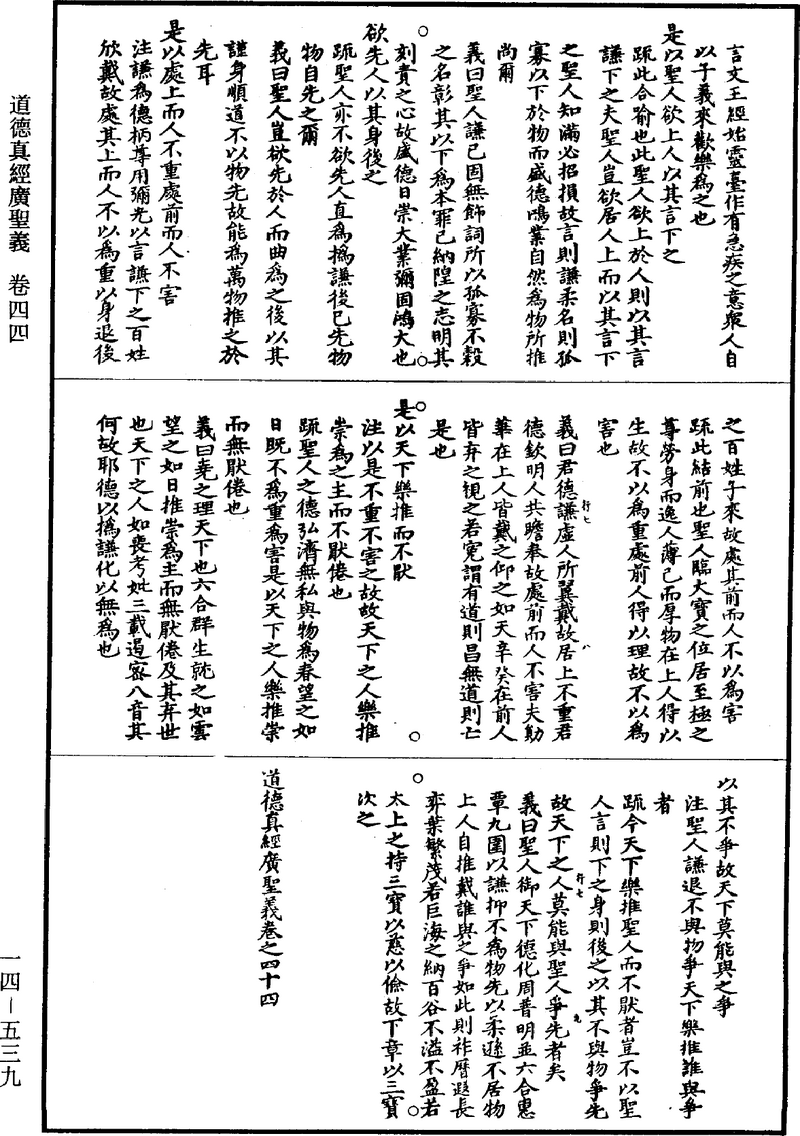 道德真經廣聖義　卷四四
一四－五三九
言文王經始靈臺作有急疾之意衆人自
以子義來歡樂爲之也
是以聖人欲上人以其言下之
疏此合喻也此聖人欲上於人則以其言
謙下之夫聖人豈欲居人上而以其言下
之聖人知滿必招損故言則謙柔名則孤
寡以下於物而盛德鴻業自然爲物所推
尚爾
義曰聖人謙已固無飾詞所以孤寡不穀
之名彰其以下爲本罪已納隍之志明其
刻責之心故盛德日崇大業彌固鴻大也
欲先人以其身後之
疏聖人亦不欲先人直爲撝謙後已先物
物自先之爾
義曰聖人豈欲先於人而曲爲之後以其
謹身順道不以物先故能爲萬物推之於
先耳
是以處上而人不重處前而人不害
注謙爲德柄尊用彌光以言謙下之百姓
欣戴故處其上而人不以爲重以身退後
之百姓子來故處其前而人不以爲害
疏此結前也聖人臨大寶之位居至極之
尊勞身而逸人薄己而厚物在上人得以
生故不以爲重處前人得以理故不以爲
害也
義曰君德謙虛人所翼戴故居上不重君
德欽明人共瞻奉故處前而人不害夫勛
華在上人皆戴之仰之如天辛癸在前人
皆弃之視之若寃謂有道則昌無道則亡
是也
是以天下樂推而不猒
注以是不重不害之故故天下之人樂推
崇爲之主而不猒倦也
疏聖人之德弘濟無私與物爲春望之如
日既不爲重爲害是以天下之人樂推崇
而無猒倦也
義曰堯之理天下也六合群生就之如雲
望之如日推崇爲主而無猒倦及其弃世
也天下之人如喪考妣三載遏密八音其
何故耶德以撝謙化以無爲也
以其不爭故天下莫能與之爭
注聖人謙退不與物爭天下樂推誰與爭
者
疏今天下樂推聖人而不猒者豈不以聖
人言則下之身則後之以其不與物爭先
故天下之人莫能與聖人爭先者矣
義曰聖人御天下德化周普明並六合惠
覃九圍以謙抑不爲物先以柔遜不居物
上人自推戴誰與之爭如此則祚曆遐長
弈葉繁茂若巨海之納百谷不溢不盈若
太上之持三寶以慈以儉故下章以三寶
次之
道德真經廣聖義卷之四十四